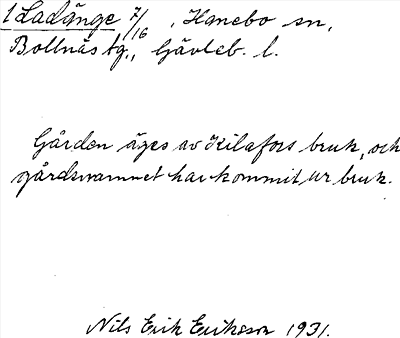 1 Ladänge 7/16, Hanebo sn,
Bollnäs tg., Gävleb. l.
Gården äges av Kilafors bruk, och
gårdsnamnet har kommit ur bruk.
Nils Erik Eriksson 1931.